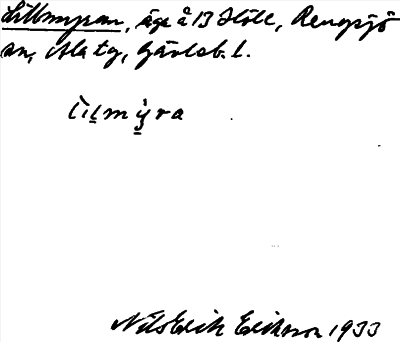 Lillmyran, äga å 13 Höle, Rengsjö
sn, Ala tg, Gävleb. l.
lìlmỳra
Nils Erik Erikson 1933